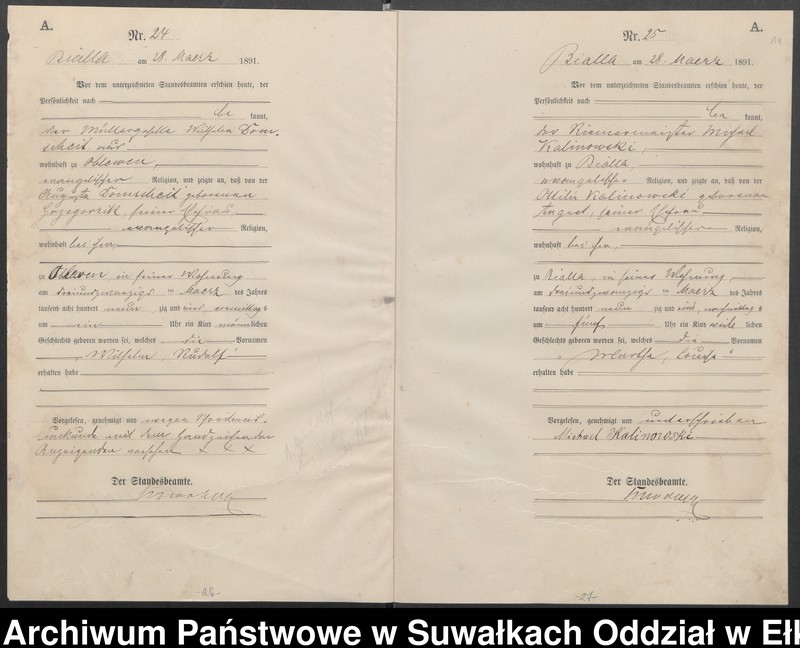 A.
Nr. 24
Bialla am 28. Maerz 1891.
Vor dem unterzeichneten Standesbeamten erschien heute, der
Persönlichkeit nach
be kannt,
der Müllergeselle Wilhelm Dom-
scheit
wohnhaft zu Oblewen,
evangelischer Religion, und zeigte an, daß von der
Auguste Domscheit geborenen
Grzegorzik seiner Ehefrau,
evangelischer Religion,
wohnhaft bei ihm
zu Oblewen in seiner Wohnung
am dreiundzwanzigs ten Maerz des Jahres
tausend acht hundert neun zig und eins, vormittag s
um ein Uhr ein Kind männlichen
Geschlechts geboren worden sei, welches die Vornamen
Wilhelm, Rudolf
erhalten habe
Vorgelesen, genehmigt und wegen Schreibens-
unkunde mit dem Handzeichen des
Anzeigenden versehen + + +
Der Standesbeamte.
-26-
A.
Nr. 25
Bialla am 28. Maerz 1891.
Vor dem unterzeichneten Standesbeamten erschien heute, der
Persönlichkeit nach
be kannt,
der Riemermeister Michael
Kalinowski,
wohnhaft zu Bialla,
evangelischer Religion, und zeigte an, daß von der
Ottilie Kalinowski geborenen
August, seiner Ehefrau,
evangelischer Religion,
wohnhaft bei ihm,
zu Bialla, in seiner Wohnung,
am dreiundzwanzigs ten Maerz des Jahres
tausend acht hundert neun zig und eins, nachmittag s
um fünf Uhr ein Kind weib lichen
Geschlechts geboren worden sei, welches die Vornamen
Martha, Louise
erhalten habe
Vorgelesen, genehmigt und unterschrieben
Michael Kalinowski
Der Standesbeamte.
-27-
Archiwum Państwowe w Suwałkach Oddział w Ełk